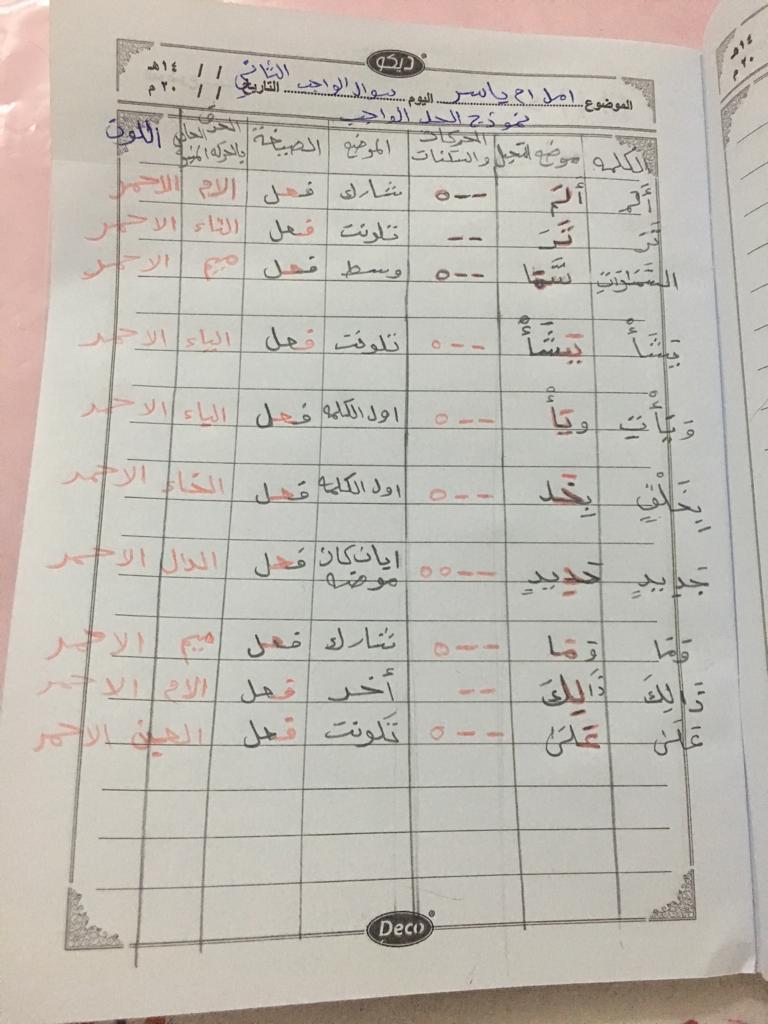 ديكو
الموضوع امل ام ياسر اليوم سوال الواجب الثاني التاريخ / / ١٤هـ
/ / ٢٠م
نموذج الحل الواجب
الكلمه موضع التحيل الحركات والسكنات الموضع الصيغة الحرف الحالي بالحركه اللون
أَلَم أَلَمَ --٥ شارك فعل الام الاحمر
تَرَ تَرَ -- تلونت فعل التاء الاحمر
السَّمَاوَاتِ سَّمَا --٥ وسط فعل ميم الاحمر
يَشَأْ يَشَأْ --٥ تلونت فعل الياء الاحمر
وَيَأْتِ ويَأْ --٥ اول الكلمه فعل الياء الاحمر
بِخَلْقٍ بِخَل --٥ اول الكلمه فعل الخاء الاحمر
جَدِيدٍ جَدِيدٍ --٥٥ ايان كان موضه فعل الدال الاحمر
وَمَا وَمَا --٥ تشارك فعل ميم الاحمر
ذَالِكَ ذَالِكَ -- أخد فعل الام الاحمر
عَلَى عَلَى --٥ تكونت فعل العين الاحمر
Deco
١٤هـ
٢٠م